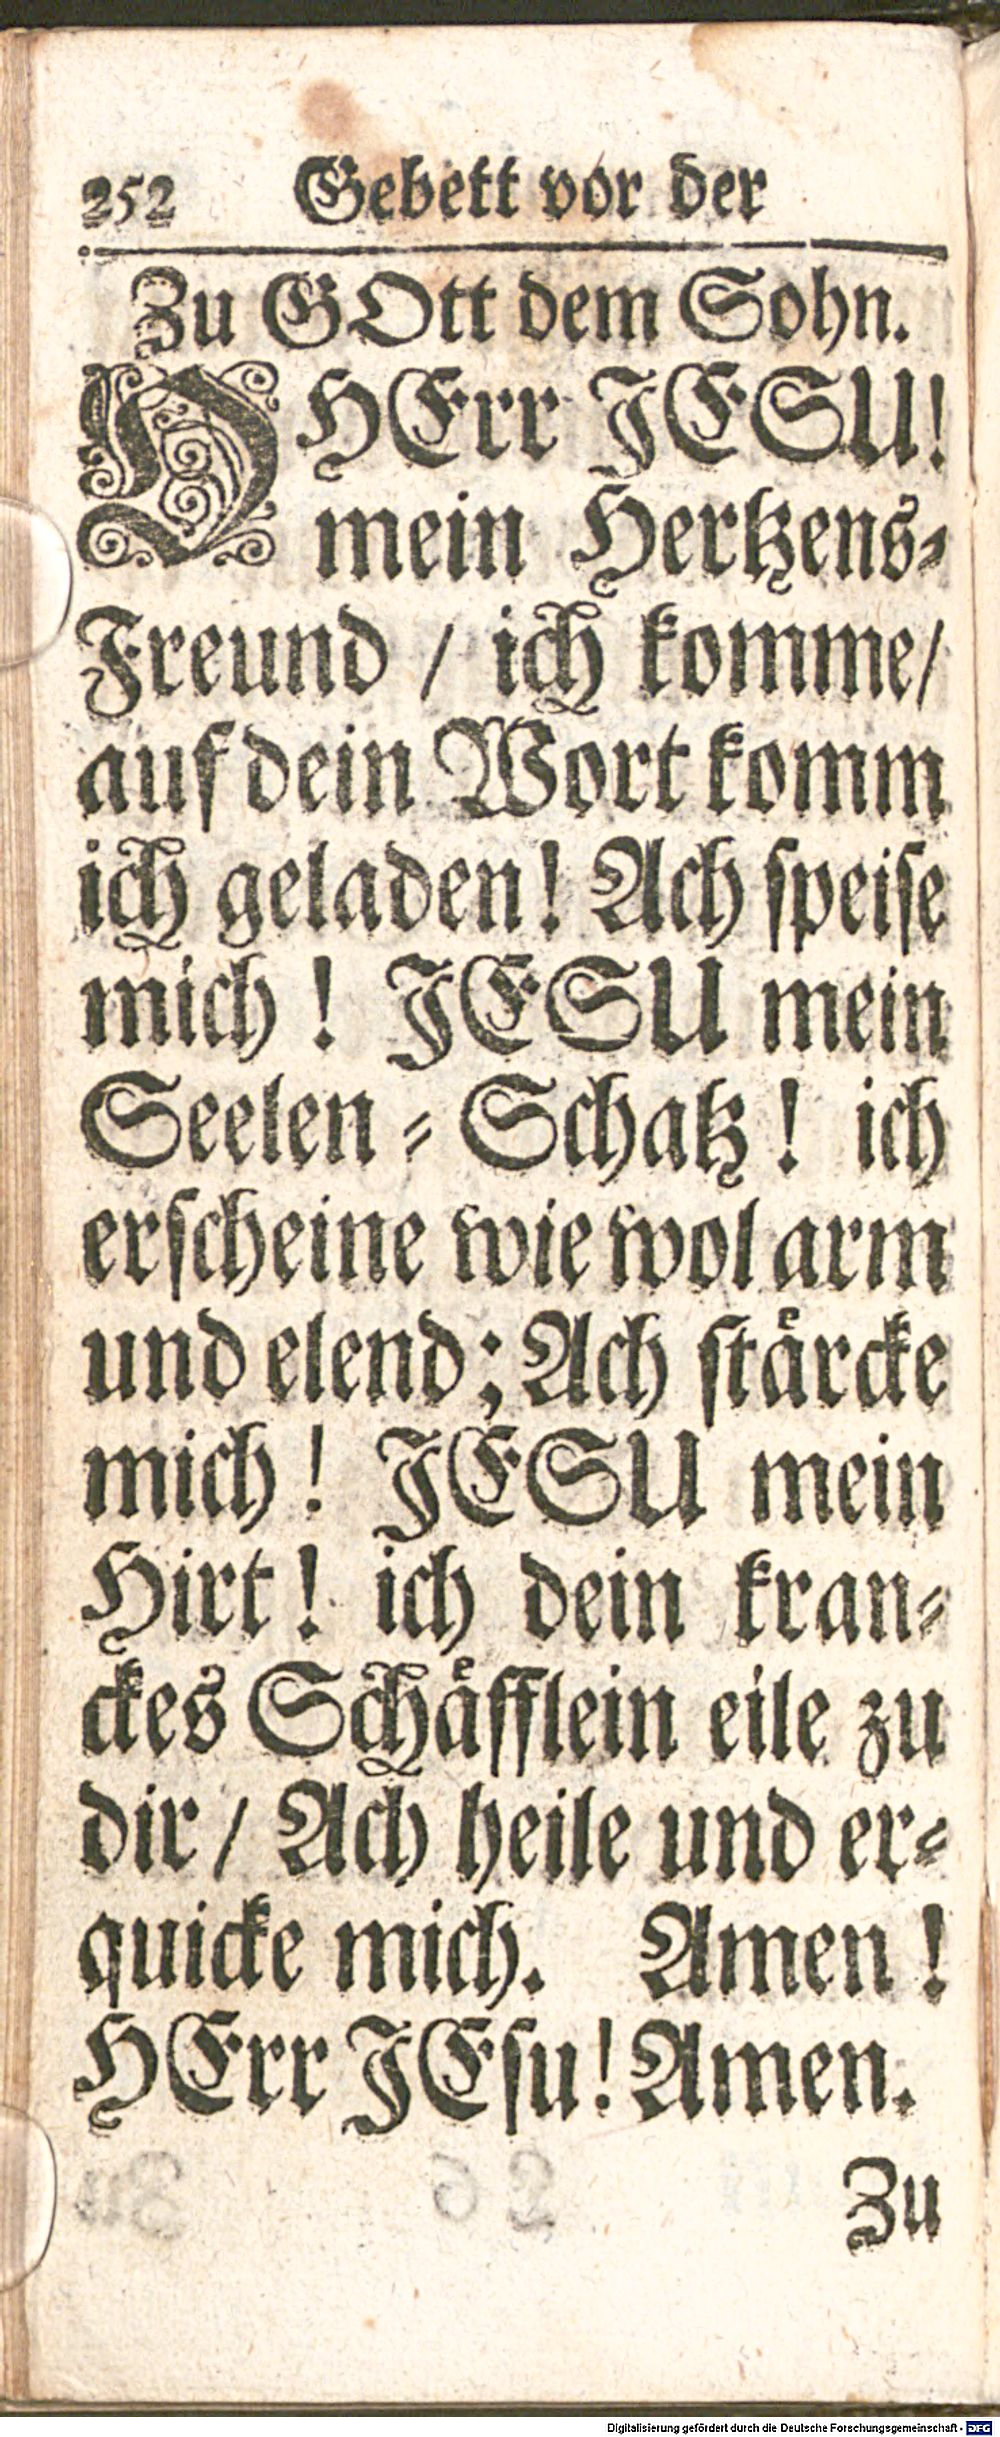 252 Gebett vor der
Zu GOtt dem Sohn.
O HErr JESU!
mein Hertzens-
Freund / ich komme/
auf dein Wort komm
ich geladen! Ach speise
mich! JESU mein
Seelen-Schatz! ich
erscheine wie wol arm
und elend; Ach stärcke
mich! JESU mein
Hirt! ich dein kran-
ckes Schäfflein eile zu
dir / Ach heile und er-
quicke mich. Amen!
HErr JEsu! Amen.
Zu
Digitalisierung gefördert durch die Deutsche Forschungsgemeinschaft - DFG